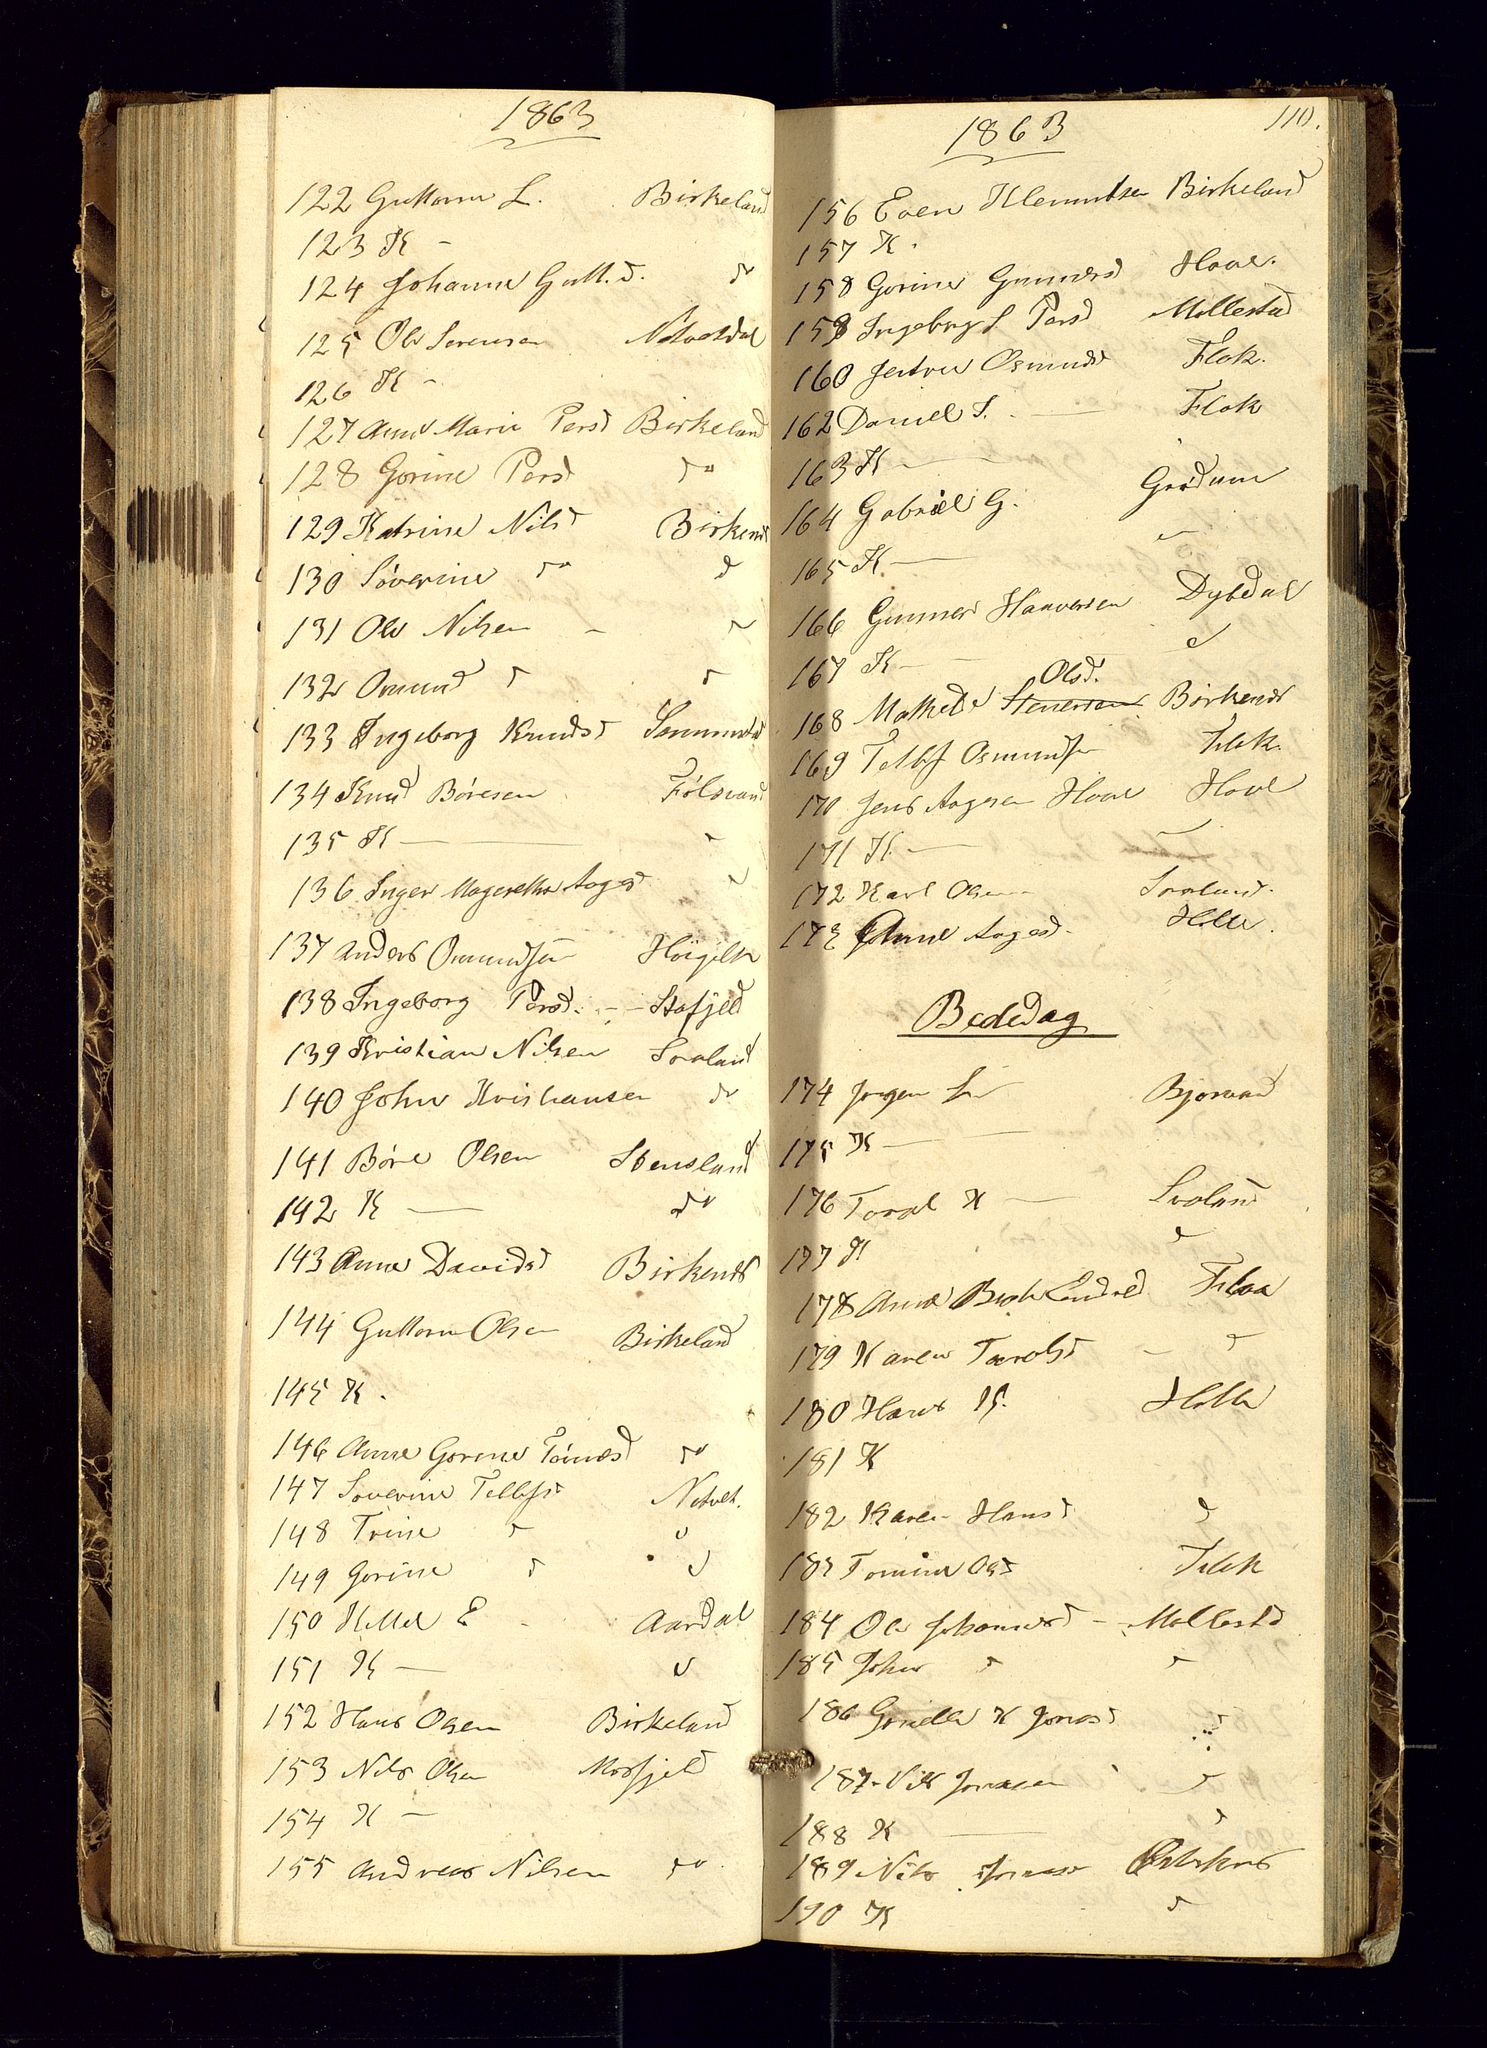 1863
122 Guttorm L. Birkeland
123 K -
124 Johanne Gutt.d. do
125 Ole Sørensen
126 K -
127 Anne Marie Persd Birkeland
128 Gorine Persd do
129 Katrine Nilsd Birkends
130 Søverine do d
131 Ole Nilsen - do
132 Osmund d d
133 Ingeborg Knudsd
134 Knud Børesen Følsvand
135 K - "
136 Inger Magrethe Aagesd "
137 Anders Osmundsen
138 Ingeborg Persd. - - Stafjeld
139 Kristian Nilsen Svaland
140 John Kristiansen do
141 Børe Olsen Stensland
142 K - do
143 Anne Davidsd Birkends
144 Guttorm Olsen Birkeland
145 K.
146 Anne Gorine do
147 Søverine Tellefsd Netvet.
148 Trine d d
149 Gorine d d
150 Kittel E - Aardal
151 K - d
152 Hans Olsen Birkeland
153 Nils Olsen Mosfjeld
154 K -
155 Andreas Nilsen do
110.
1863
156 Even Klemmetsen Birkeland
157 K.
158 Gorine Gunnersd Hove.
159 Ingeborg S Persd Mollestad
160 Osmundsd Flak.
162 Daniel S. - Flak
163 K -
164 Gabriel G. Grødum
165 K - "
166 Gunner Haaversen Dybdal
167 K - d
Olsd.
168 Mathilde Stenersen Birkends
169 Tellef Osmundsen Flak.
170 Jens Aagesen Hove Hove
171 K -
172 Karl Olsen Svaland.
173 Anne Aagesd. Hille.
Bededag
174 Jørgen Bjorvand
175 K -
176 Tarald K - Svaland
177 K d
178 Anne Flaa
179 Karen Taraldsd - d
180 Hans Hille
181 K
182 Karen Hansd d
183 Tomine Flak
184 Ole Johannesd - Mollestad
185 John d d
186 K Jonasd d
187 Nils Jonassen d
188 K - d
189 Nils
190 K d